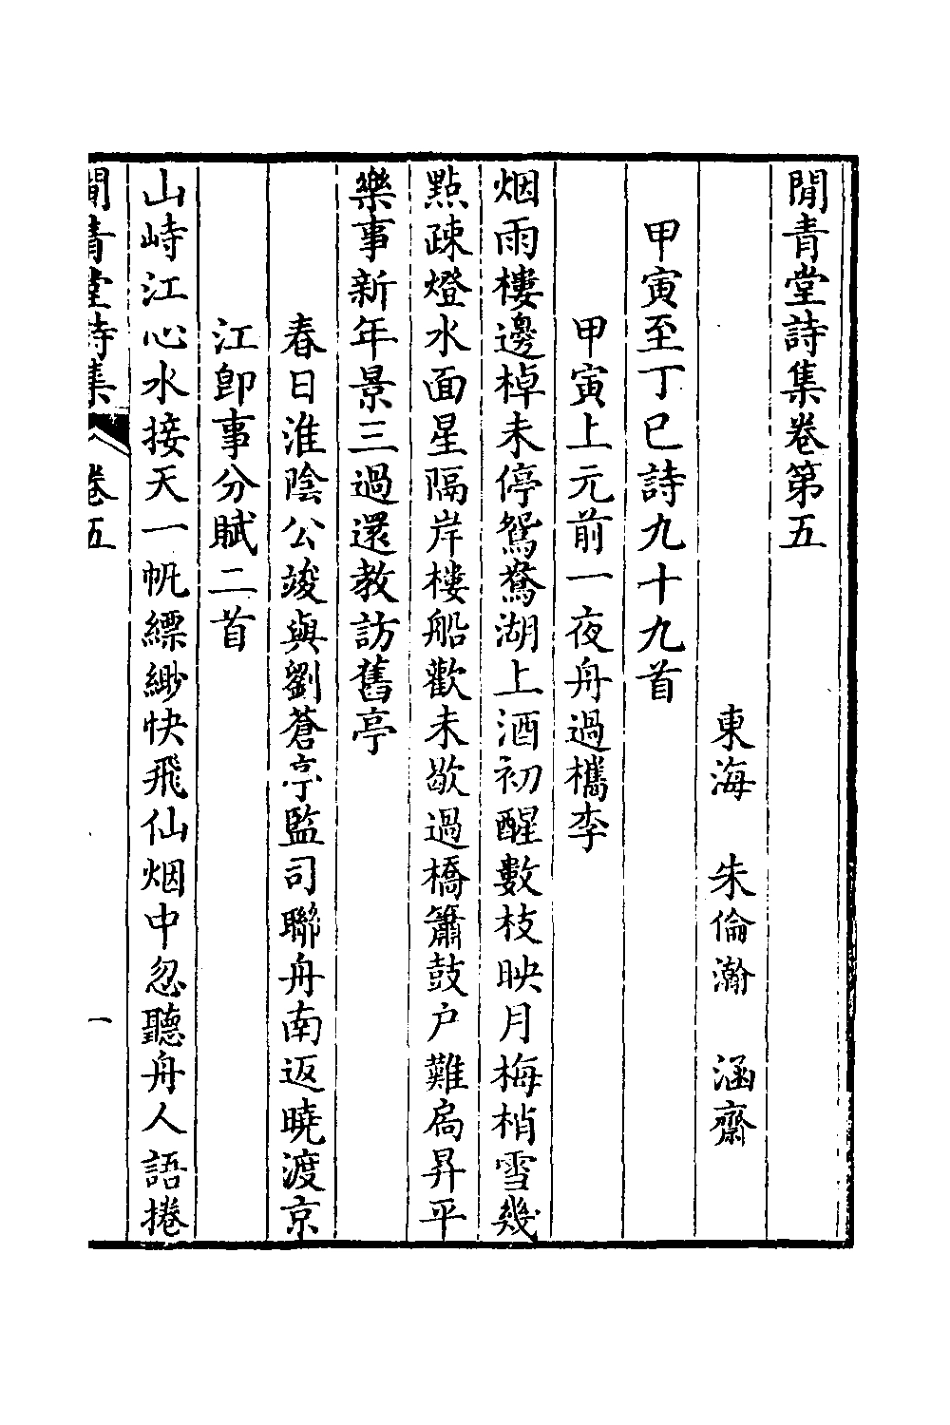 閒青堂詩集卷第五
東海　朱倫瀚　涵齋
甲寅至丁巳詩九十九首
甲寅上元前一夜舟過檇李
烟雨樓邊棹未停鴛鴦湖上酒初醒數枝映月梅梢雪幾
點疎燈水面星隔岸樓船歡未歇過橋簫鼓户難扃昇平
樂事新年景三過還教訪舊亭
春日淮陰公竣與劉蒼亭監司聯舟南返曉渡京
江卽事分賦二首
山峙江心水接天一帆縹緲快飛仙烟中忽聽舟人語捲
閒青堂詩集
卷五
一